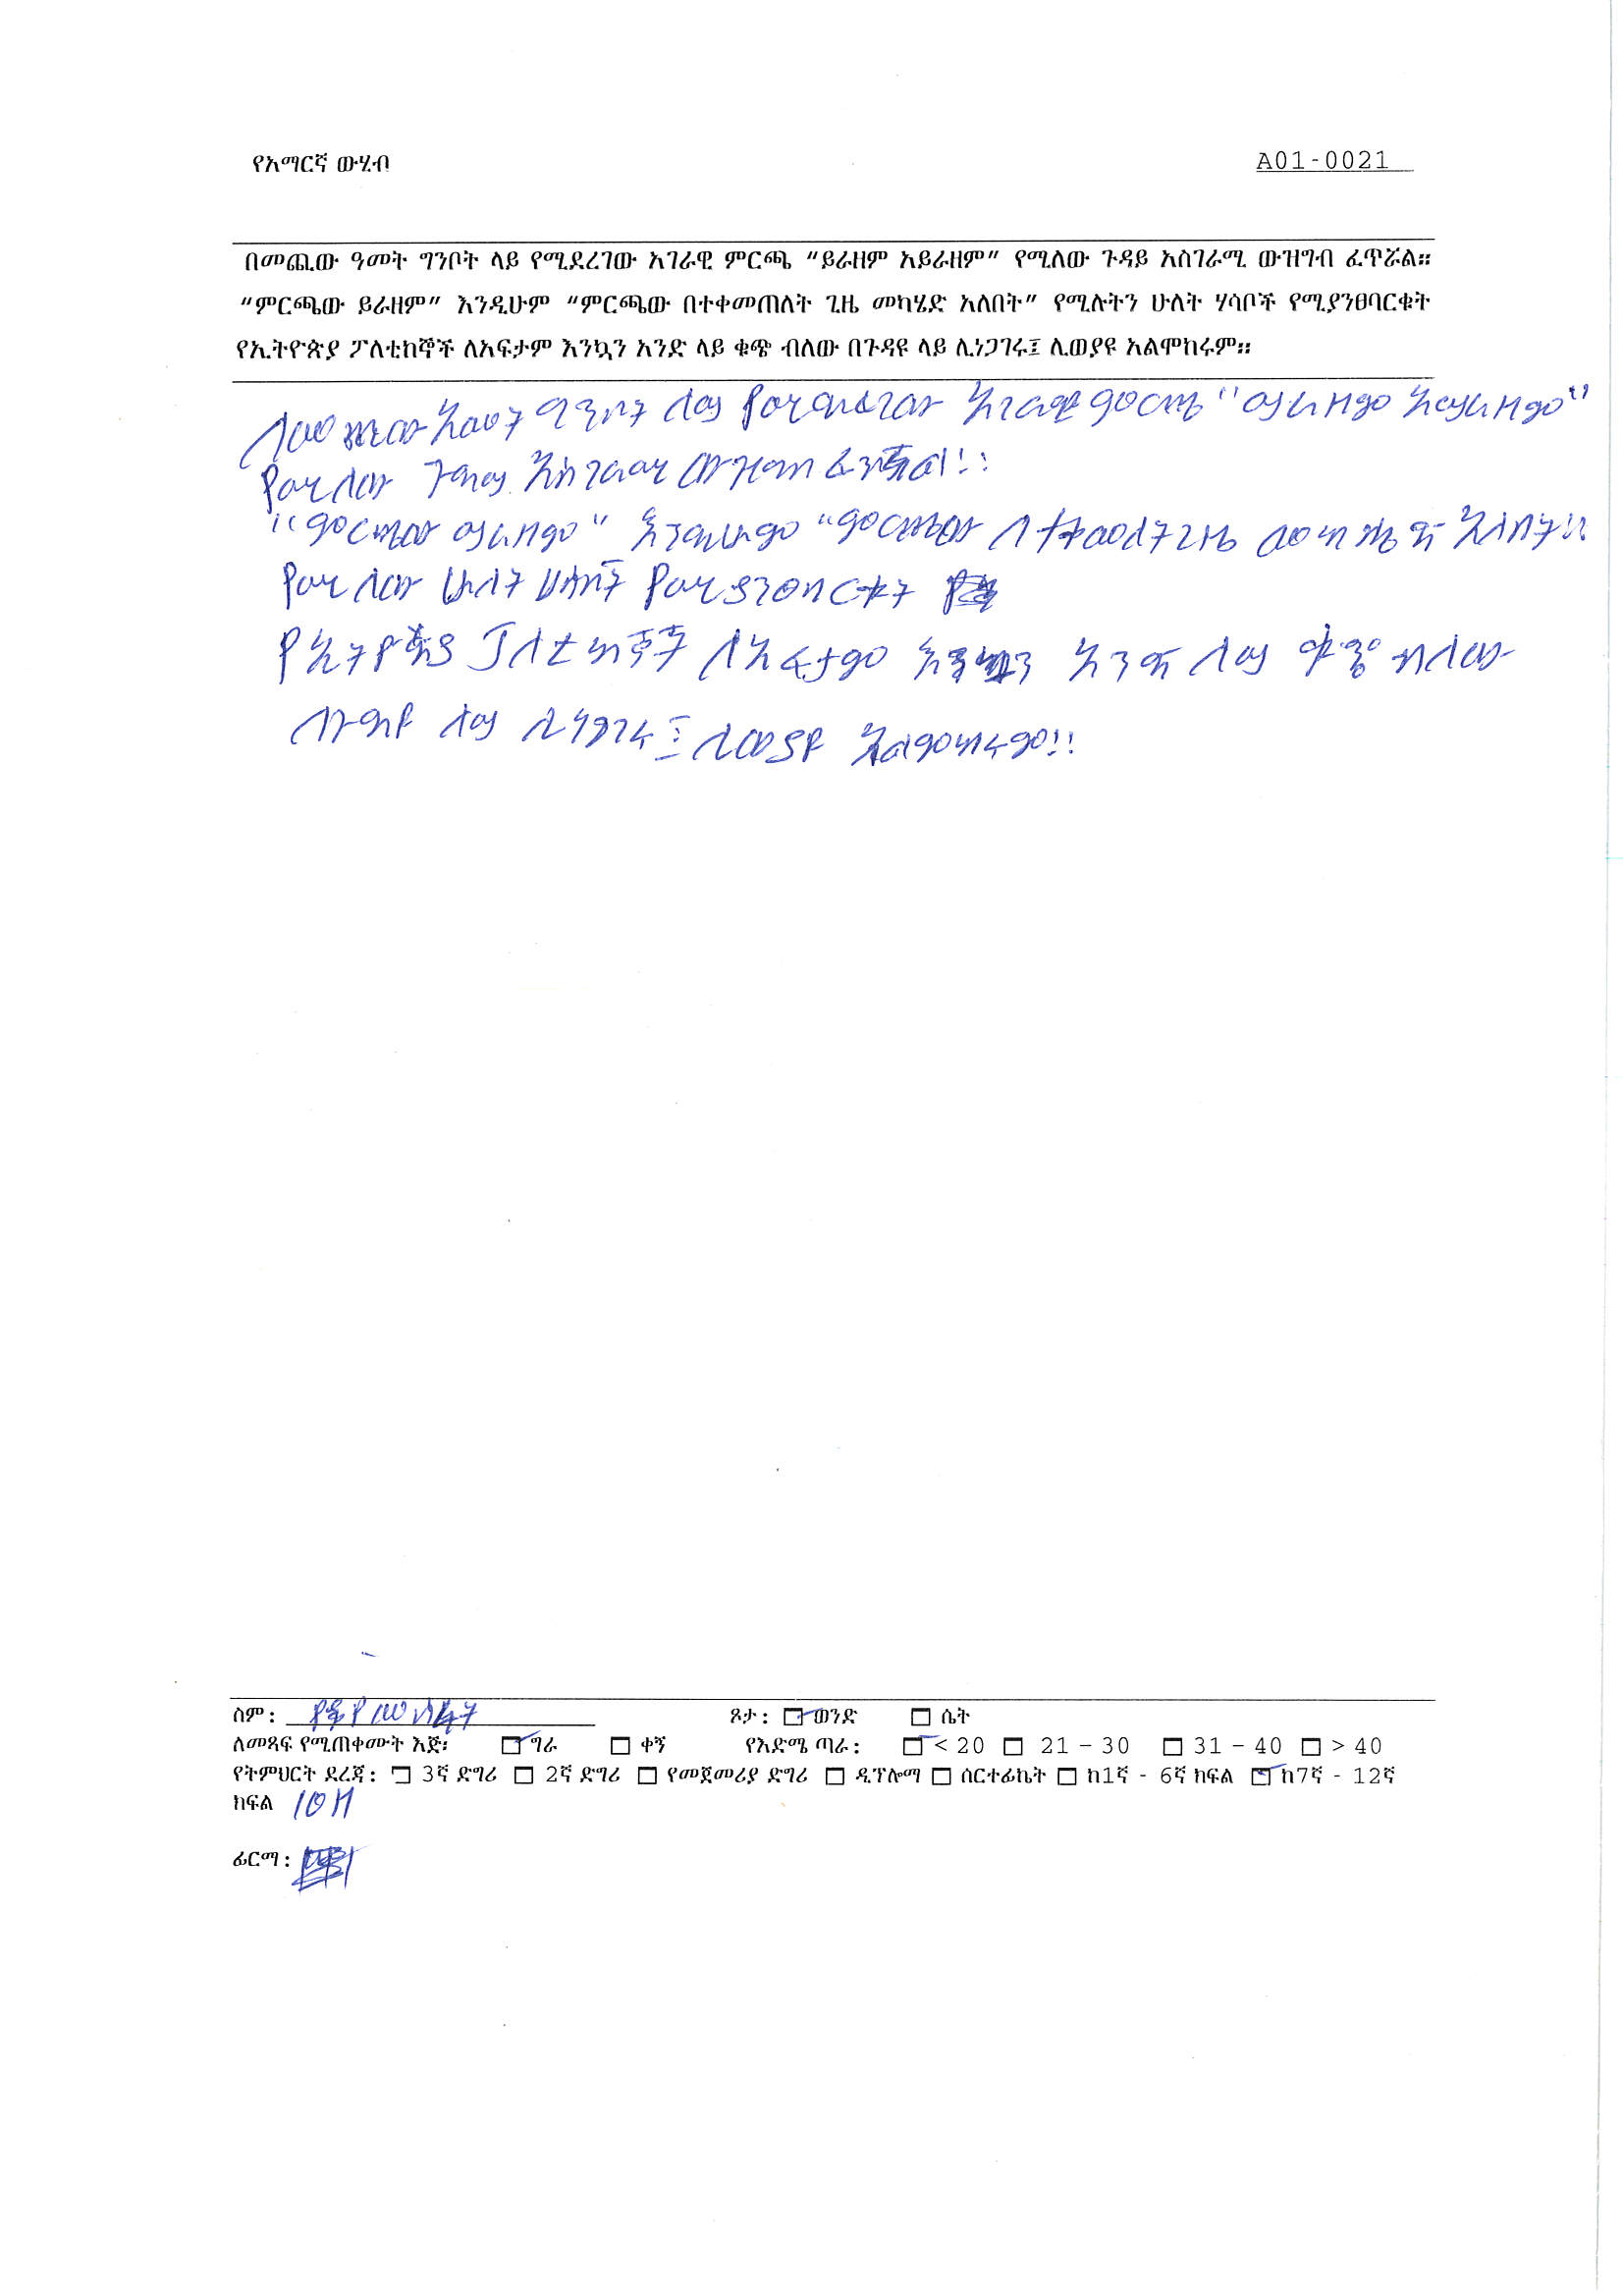 የአማርኛ ውሂብ
A01-0021
በመጪው ዓመት ግንቦት ላይ የሚደረገው አገራዊ ምርጫ “ይራዘም አይራዘም” የሚለው ጉዳይ አስገራሚ ውዝግብ ፈጥሯል።
“ምርጫው ይራዘም” እንዲሁም “ምርጫው በተቀመጠለት ጊዜ መካሄድ አለበት” የሚሉትን ሁለት ሃሳቦች የሚያንፀባርቁት
የኢትዮጵያ ፖለቲከኞች ለአፍታም እንኳን አንድ ላይ ቁጭ ብለው በጉዳዩ ላይ ሊነጋገሩ፤ ሊወያዩ አልሞከሩም።
በመጪው አመት ግንቦት ላይ የሚደረገው አገራዊ ምርጫ “ይራዘም አይራዘም”
የሚለው ጉዳይ አስገራሚ ውዝግብ ፈጥሯል።
“ምርጫው ይራዘም” እንዲሁም “ምርጫው በተቀመጠለት ጊዜ መካሄድ አለበት።
የሚለው ሁለት ሀሳቦች የሚያንፀባርቁት
የኢትዮጵያ ፖለቲከኞች ለአፍታም እንኳን አንድ ላይ ቁጭ ብለው
በጉዳዩ ላይ ሊነጋገሩ፤ ሊወያዩ አልምከሩም።
ስም: ጾታ: ወንድ ሴት
ለመጻፍ የሚጠቀሙት እጅ፡ ግራ ቀኝ የእድሜ ጣራ: < 20 21 – 30 31 – 40 > 40
የትምህርት ደረጃ: 3ኛ ድግሪ 2ኛ ድግሪ የመጀመሪያ ድግሪ ዲፕሎማ ሰርተፊኬት ከ1ኛ - 6ኛ ክፍል ከ7ኛ - 12ኛ
ክፍል
ፊርማ: